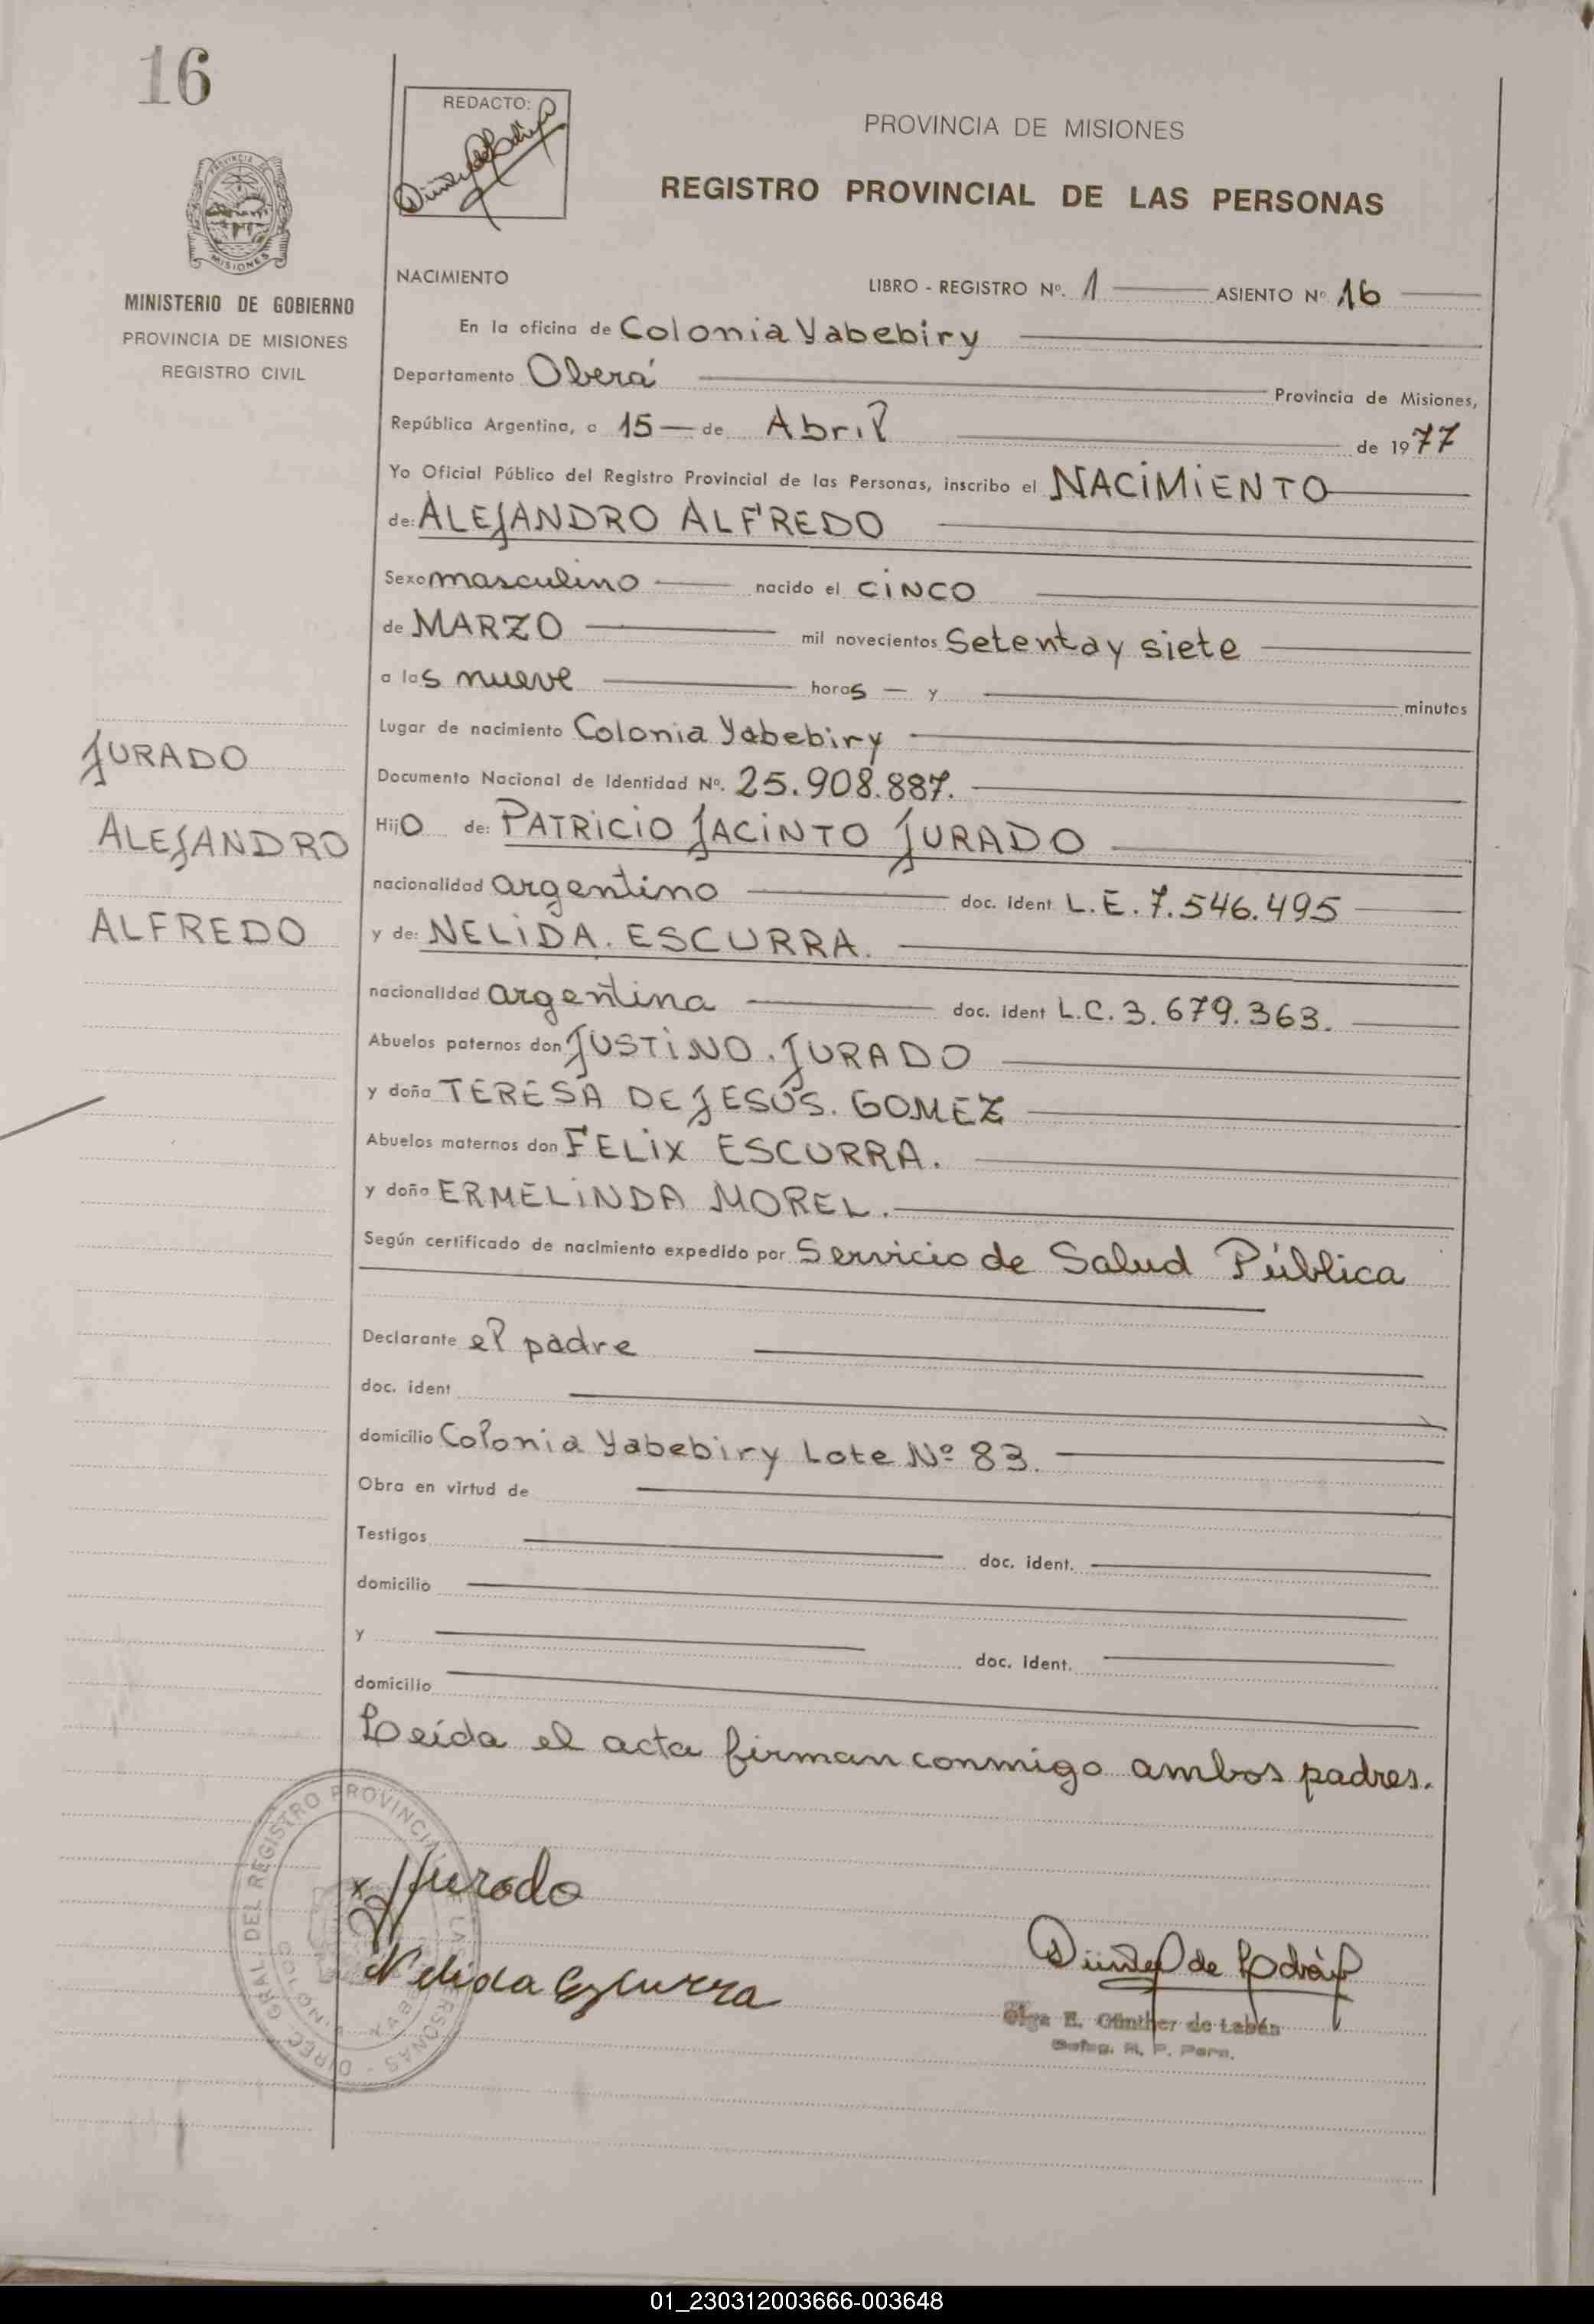 16
REDACTO:
PROVINCIA DE MISIONES
REGISTRO PROVINCIAL DE LAS PERSONAS
PROVINCIA DE
MISIONES
MINISTERIO DE GOBIERNO
PROVINCIA DE MISIONES
REGISTRO CIVIL
NACIMIENTO
LIBRO - REGISTRO Nº. 1 ASIENTO Nº 16
En la oficina de Colonia Yabebiry
Departamento Oberá Provincia de Misiones,
República Argentina, a 15 — de Abril de 1977
Yo Oficial Público del Registro Provincial de las Personas, inscribo el NACIMIENTO
de: ALEJANDRO ALFREDO
Sexo masculino nacido el CINCO
de MARZO mil novecientos Setenta y siete
a las nueve horas — y minutos
Lugar de nacimiento Colonia Yabebiry
Documento Nacional de Identidad Nº. 25.908.887.
JURADO
ALEJANDRO
ALFREDO
Hijo de: PATRICIO JACINTO JURADO
nacionalidad argentino doc. ident L.E. 7.546.495
y de: NELIDA. ESCURRA.
nacionalidad argentina doc. ident L.C. 3.679.363.
Abuelos paternos don JUSTINO. JURADO
y doña TERESA DE JESÚS. GOMEZ
Abuelos maternos don FELIX ESCURRA.
y doña ERMELINDA MOREL.
Según certificado de nacimiento expedido por Servicio de Salud Pública
Declarante el padre
doc. ident
domicilio Colonia Yabebiry Lote Nº 83.
Obra en virtud de
Testigos doc. ident.
domicilio
y doc. ident.
domicilio
Leída el acta firman conmigo ambos padres.
DIREC. GRAL. DEL REGISTRO PROVINCIAL DE LAS PERSONAS
x Jurado
Nelida Escurra
Olga E. Günther de Labán
Deleg. R. P. Pers.
01_230312003666-003648